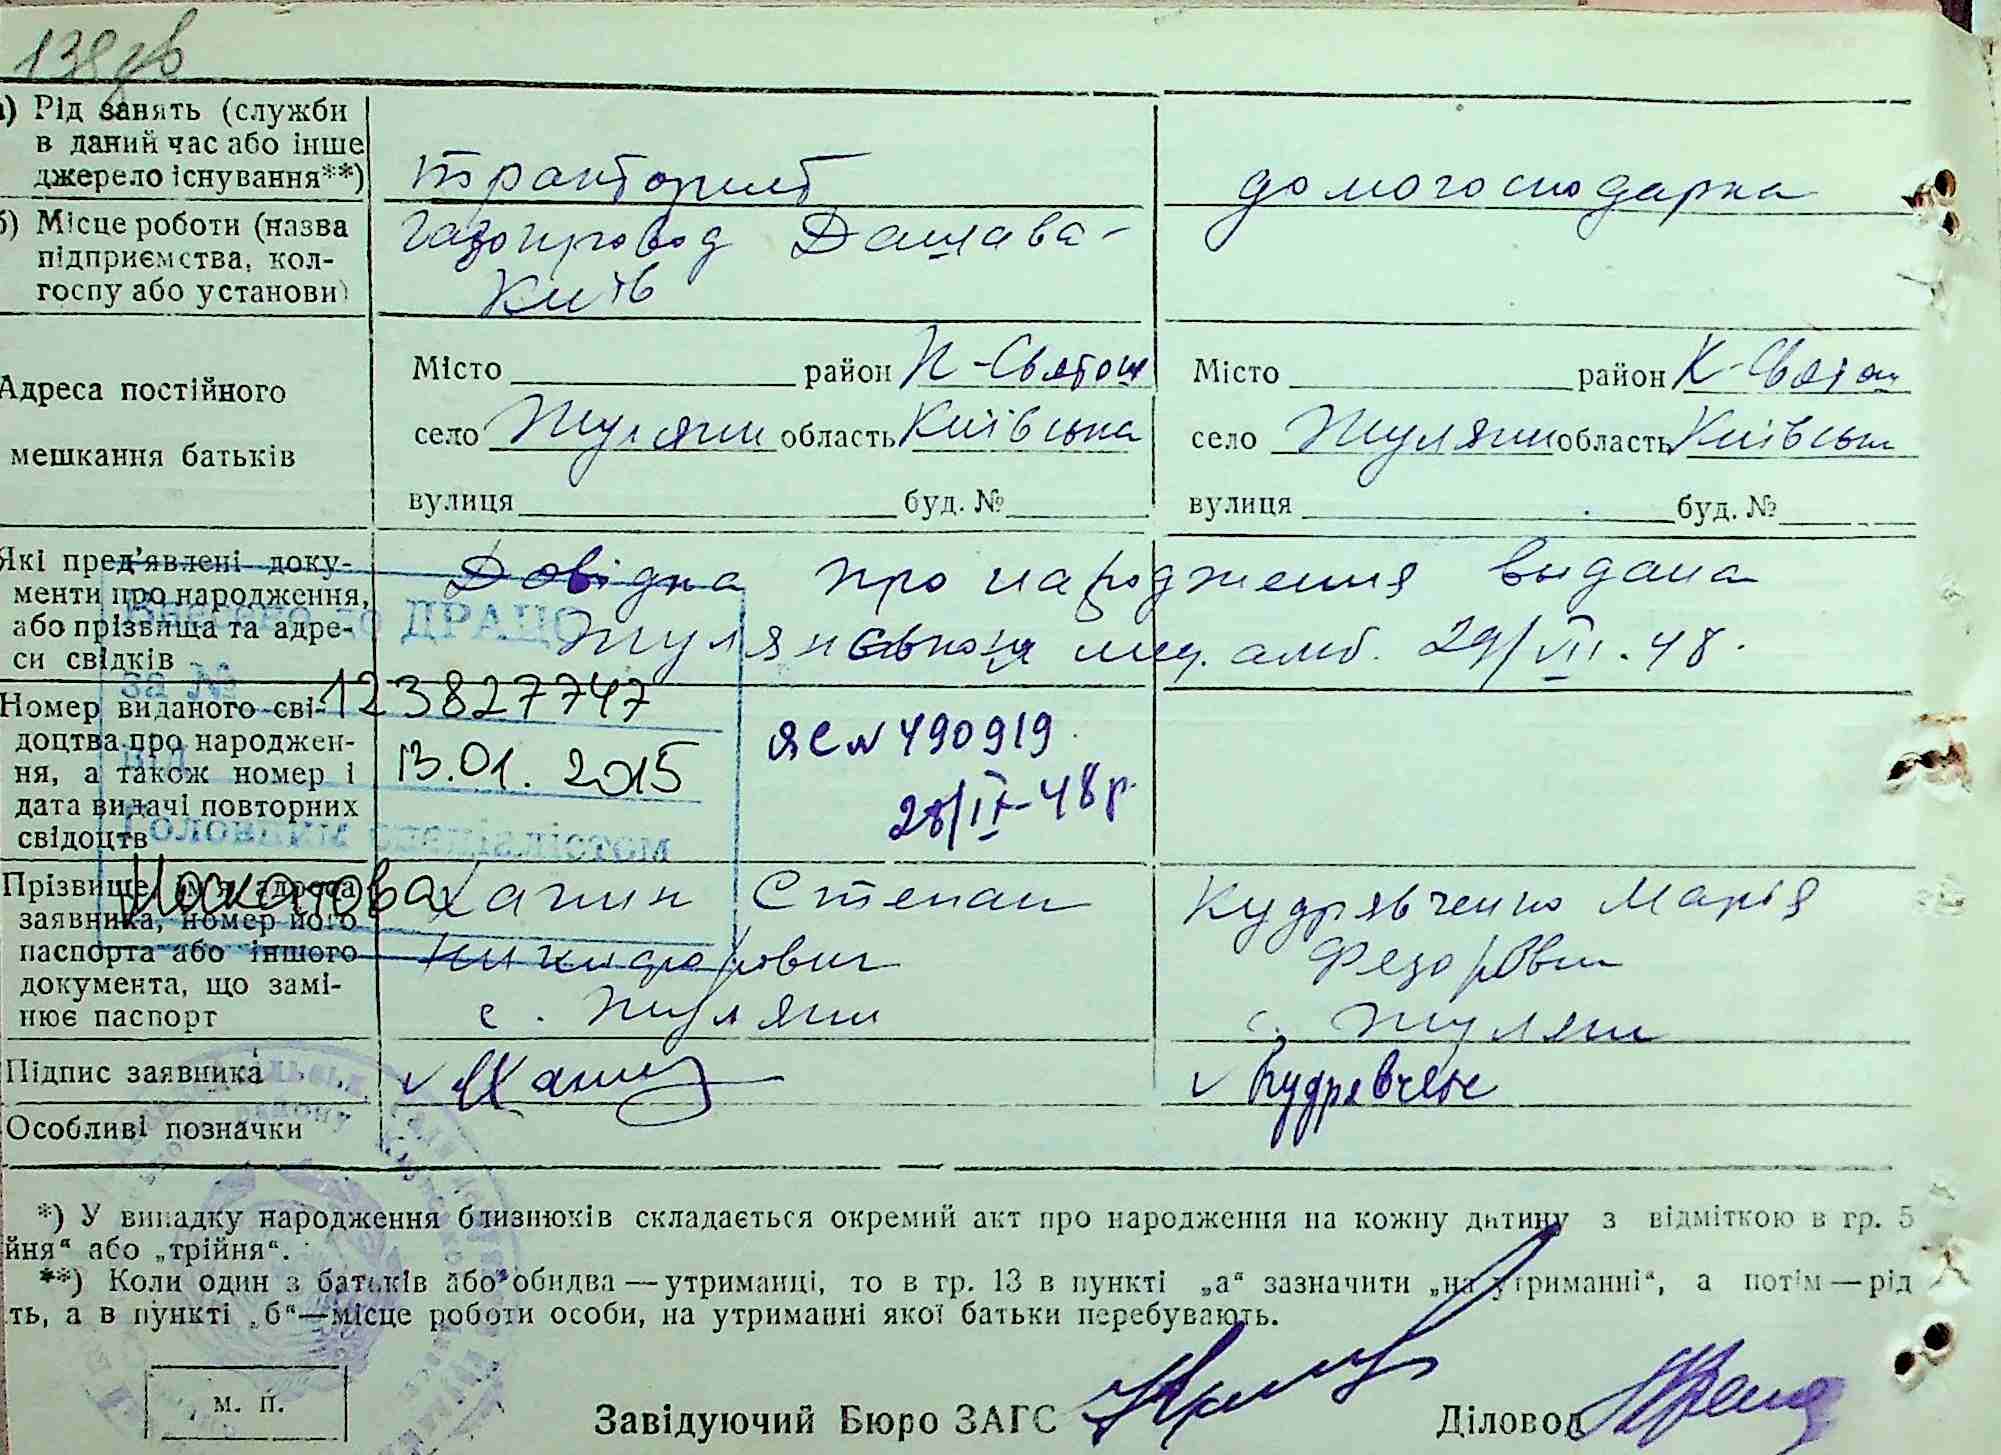 138
а) Рід занять (служби
в даний час або інше
джерело існування**)
тракторист
домогосподарка
б) Місце роботи (назва
підприємства, кол-
госпу або установи)
Газопровод Дашава-
Київ
Адреса постійного
мешкання батьків
Місто район К-Святош
село Жуляни область Київська
вулиця буд. №
Місто район К-Святош
село Жуляни область Київськ
вулиця буд. №
Які пред’явлені доку-
менти про народження,
або прізвища та адре-
си свідків
Довідка про народження видана
29/VIII.48.
Внесено до ДРАЦС
за № 123827747
від 13.01.2015
Номер виданого сві-
доцтва про народжен-
ня, а також номер і
дата видачі повторних
свідоцтв
ЯС № 490919
28/IX-48р.
Прізвище, ім’я, адреса
заявника, номер його
паспорта або іншого
документа, що замі-
нює паспорт
Степан
Никифорович
с. Жуляни
Кудрявченко Марія
Федоровн
с. Жуляни
Підпис заявника
Кудрявчен
Особливі позначки
*) У випадку народження близнюків складається окремий акт про народження на кожну дитину з відміткою в гр. 5
йня“ або „трійня“.
**) Коли один з батьків або обидва — утриманці, то в гр. 13 в пункті „а“ зазначити „на утриманні“, а потім — рід
ть, а в пункті „б“ — місце роботи особи, на утриманні якої батьки перебувають.
м. п.
Завідуючий Бюро ЗАГС
Діловод